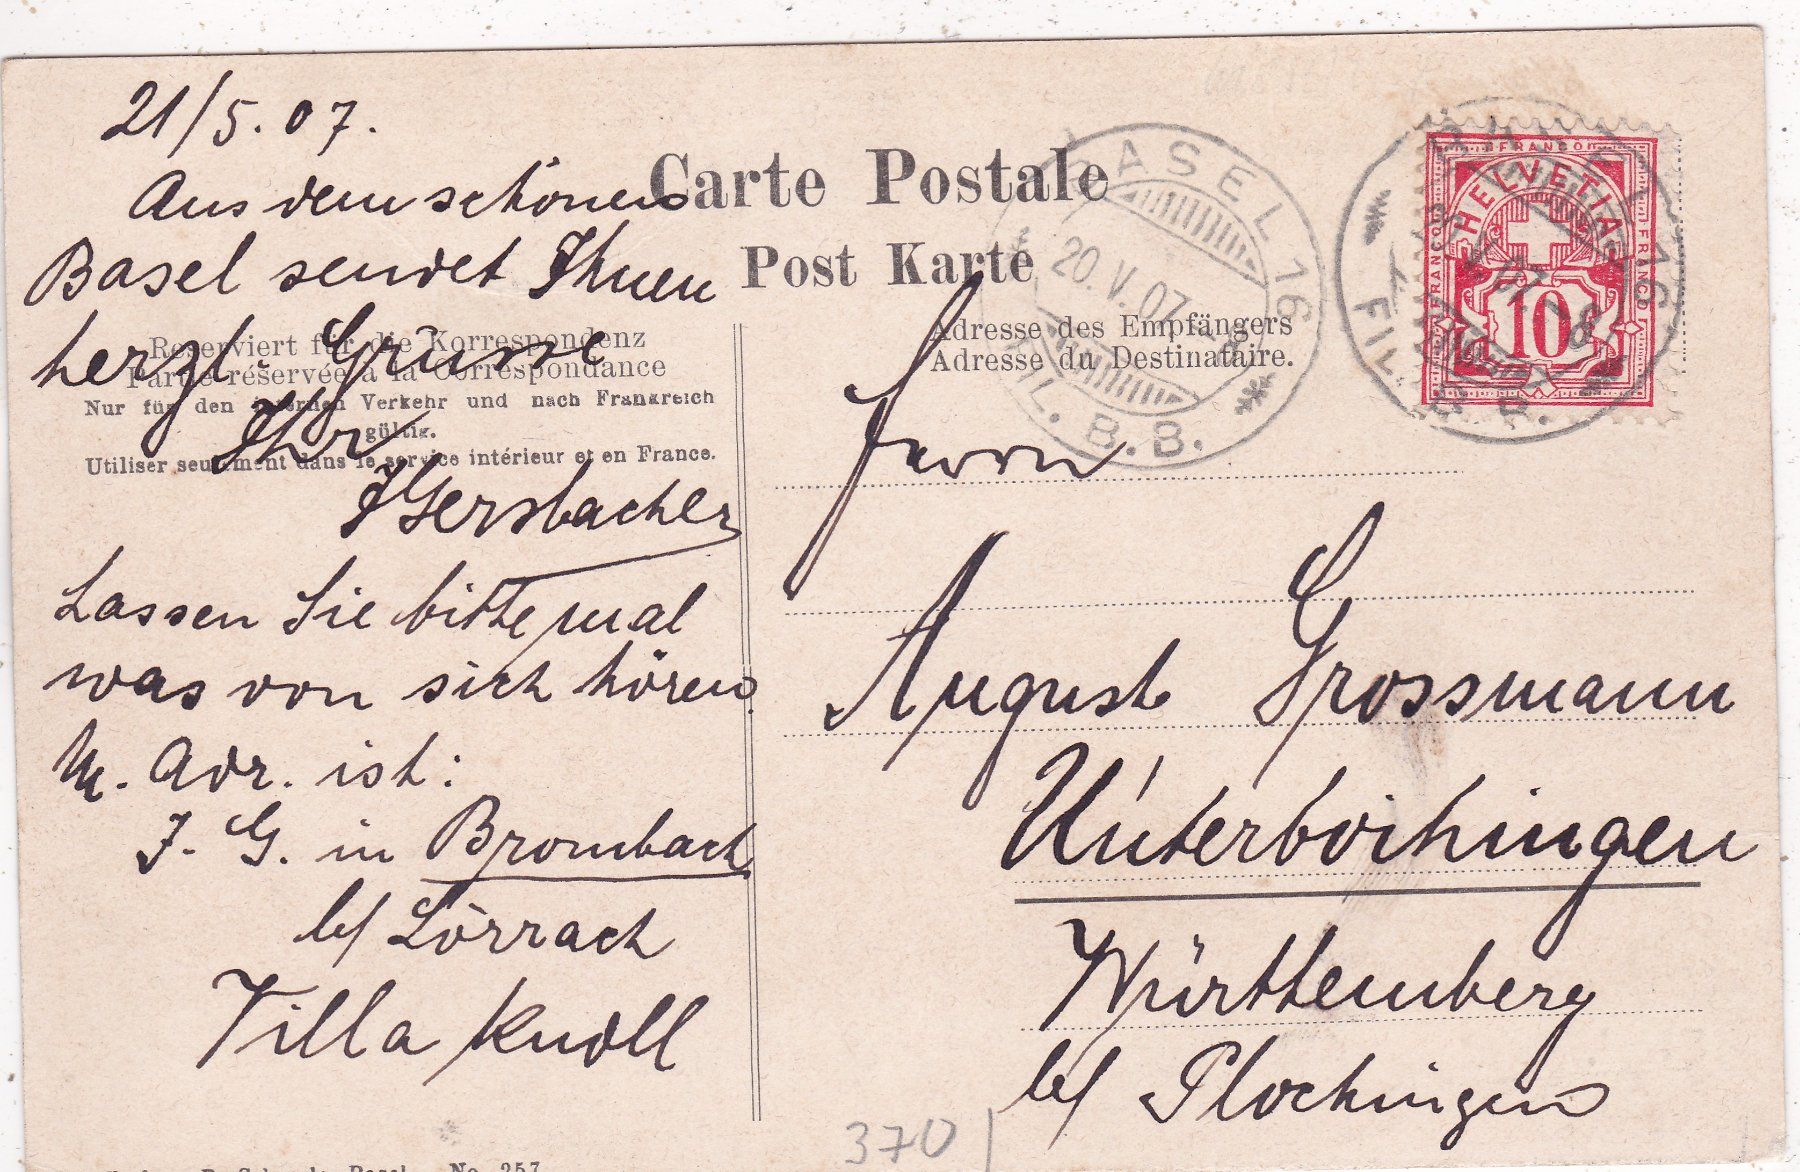 21/5.07.
Aus dem schönen
Basel sendet Ihnen
herzl. Grüsse
Ihr
JGersbacher
Lassen Sie bitte mal
was von sich hören.
M. Adr. ist:
J. G. in Brombach
b/ Lörrach
Villa Knoll
Carte Postale
Post Karte
Reserviert für die Korrespondenz
Partie réservée à la Correspondance
Nur für den internen Verkehr und nach Frankreich
gültig.
Utiliser seulement dans le service intérieur et en France.
Adresse des Empfängers
Adresse du Destinataire.
BASEL 16
20.V.07.-8
FIL. B.B.
FRANCO
HELVETIA
FRANCO
FRANCO
10
16
07.-8
FIL. B.B.
Herrn
August Grossmann
Unterboihingen
Württemberg
b/ Plochingen
370
No. 257